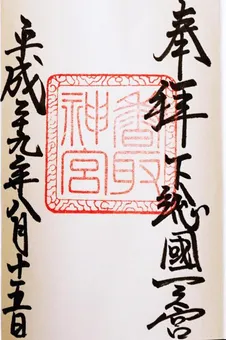 奉拝下総國一之宮
香取神宮
平成二十九年八月十五日